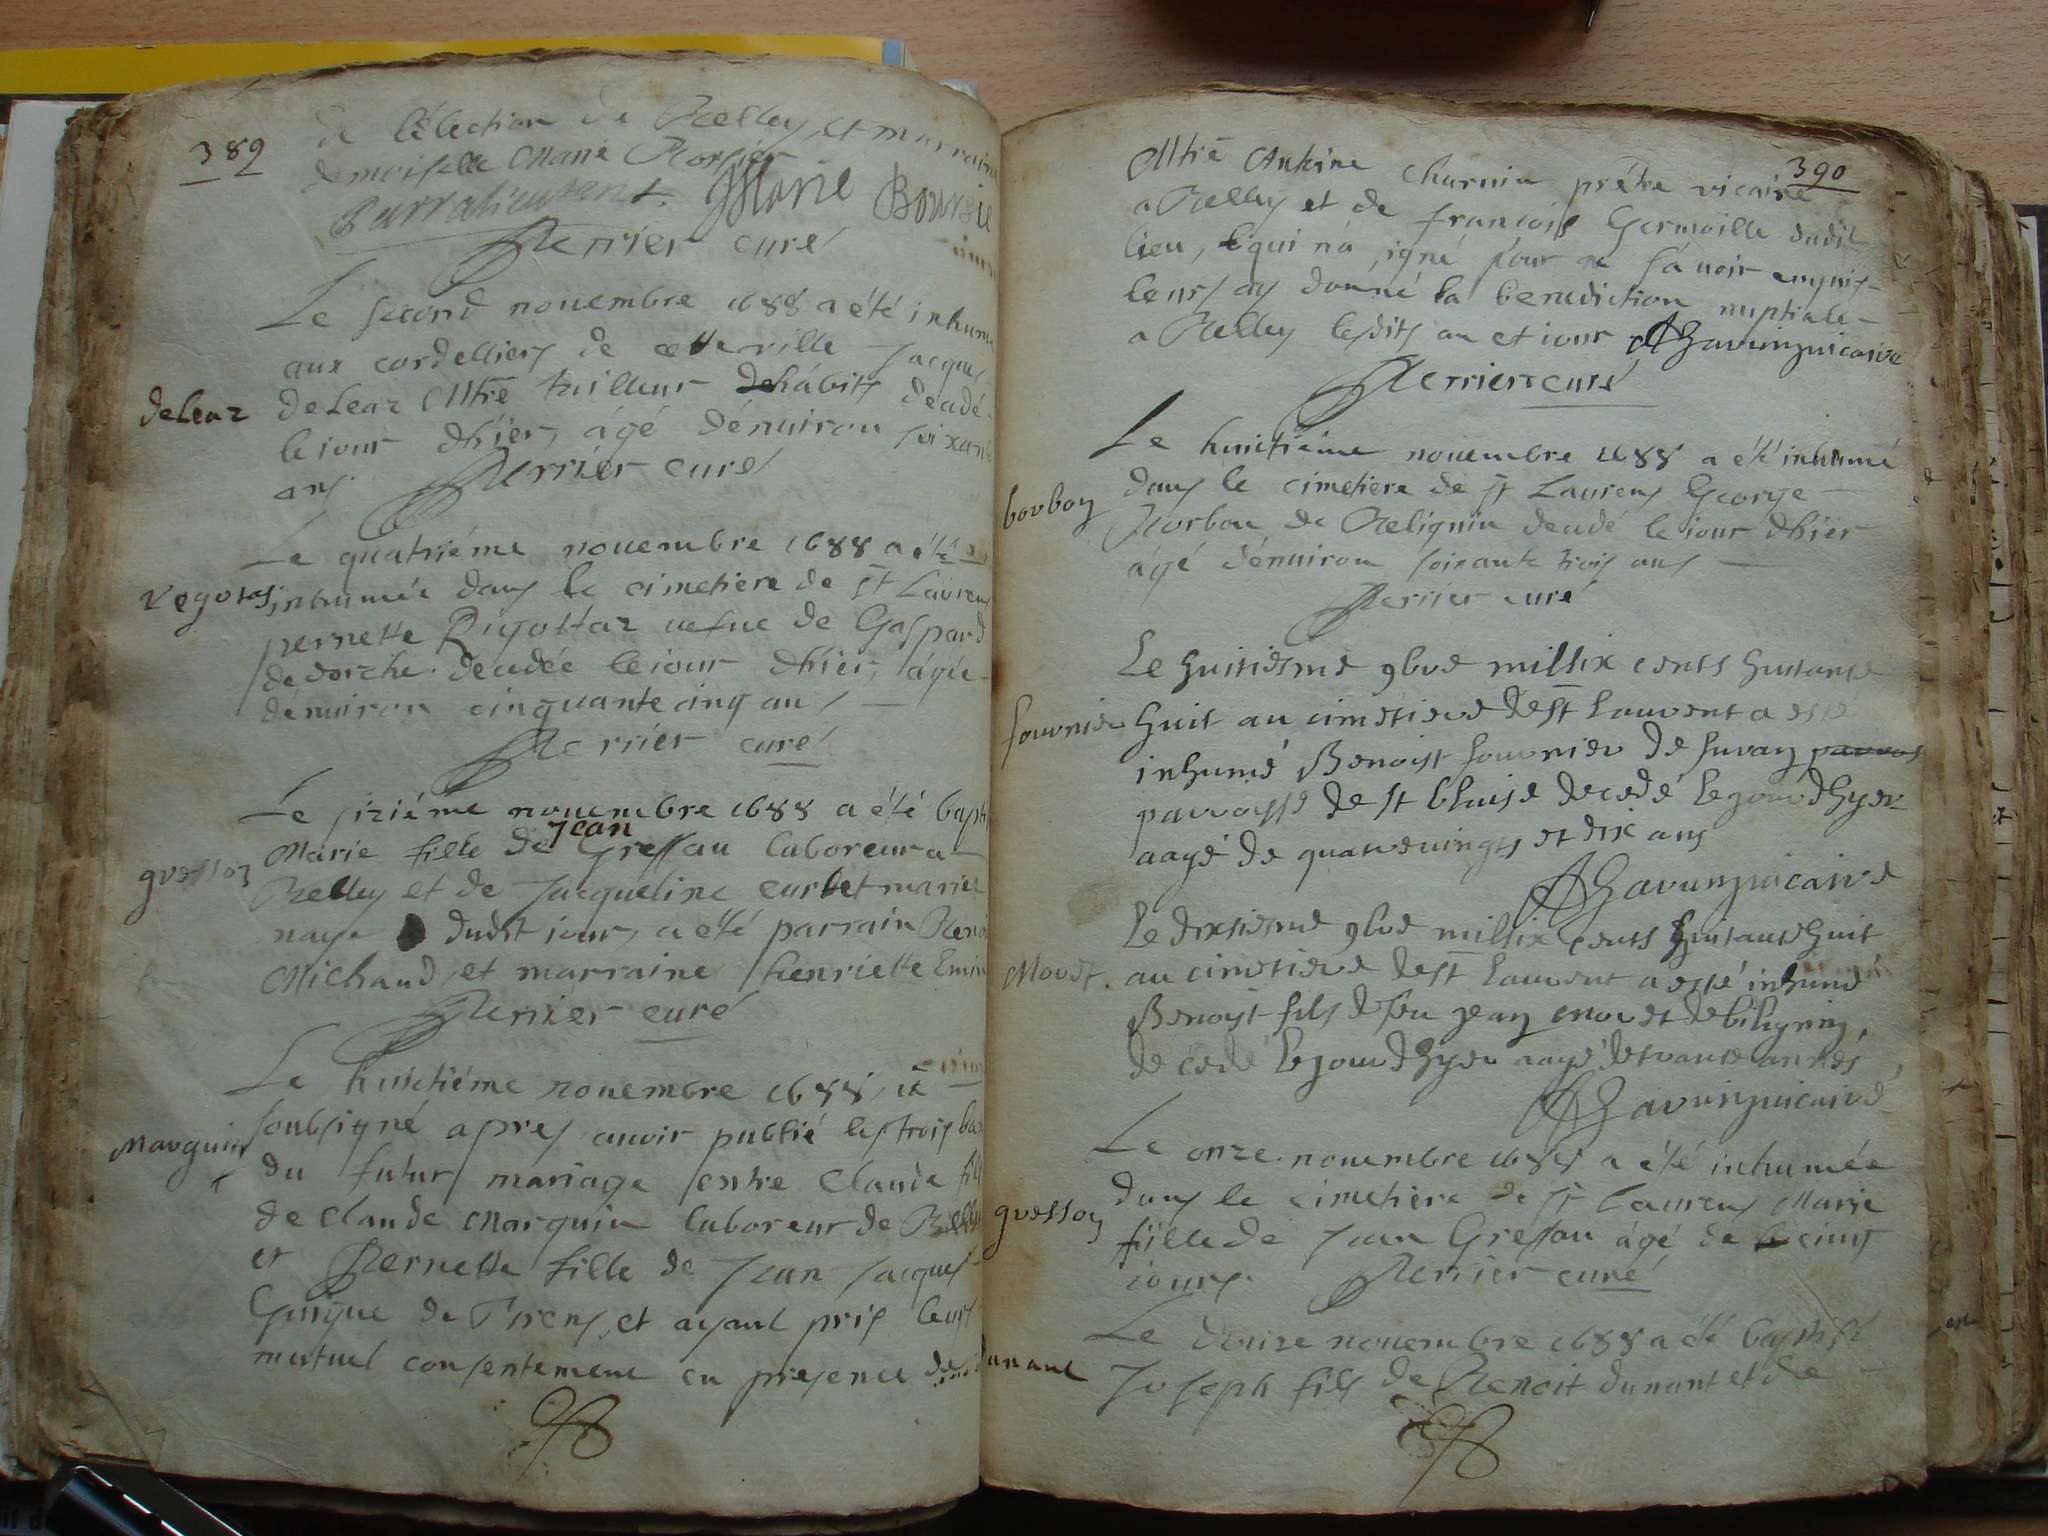 389
de l'élection de Belley, et marraine
demoiselle Marie
Marie
Perrier curé
Le second nouembre 1688 a été inhumé
aux cordelliers de cette ville Jacques
deLeaz
deLeaz Mtre tailleur dehábits decedé
le iour d'hier, ágé d'enuiron soixante
ans. Perrier curé
Le quatriéme nouembre 1688 a été
inhumée dans le cimetiere de st Laurens
pernette Rigottaz uefue de Gaspard
dedorche decedée le iour d'hier, ágée
d'enuiron cinquante cinq ans
Perrier curé
Le siziéme nouembre 1688 a été bapti
Jean
gresson
Marie fille de Gressau laboreur a
Belley et de Jacqueline curtet mariez
naye dudit iour, a été parrain Benoi
Michaud, et marraine henriette
Perrier curé
Le huictiéme nouembre 1688, ie
soubsigné apres auoir publié les trois ban
Marguin
du futur mariage entre Claude fils
de Claude Marguin laboreur de Belley
et Pernette fille de Jean Jacques
Guigue de et ayant pris leurs
mutuel consentement en presence de
390
Mtre Antoine Charuin prétre vicaire
a Belley et de françois Germoille dudit
lieu, qui n'a signé pour ne sáuoir enquis
leurs ay donné la benediction nuptiale
a Belley lesdits an et iour Acharuin vicaire
Perrier curé
Le huictiéme nouembre 1688 a été inhumé
borbon
dans le cimetiere de st Laurens George
Borbon de Beligniu decedé le iour d'hier
ágé d'enuiron soixante trois ans
Perrier curé
Le huitiesme 9bre mil six cents huitante
fournier
huit au cimetiere de st Laurent a esté
inhumé Benoist fournier de
parroisse de st blaise decedé le jour d'hyer
aagé de quatrevingts et dix ans
Acharuin vicaire
Le dixsiesme 9bre mil six cents huitante huit
Moret.
au cimetiere de st Laurent a esté inhumé
Benoist fils de feu Jean moret de biligning,
decedé le jour d'hyer aagé de trante années
Acharuin vicaire
Le onze nouembre 1688 a été inhumée
gresson
dans le cimetiére de st Laurens Marie
fille de Jean Gressau ágé de cinq
iours. Perrier curé
Le douze nouembre 1688 a été baptisé
dunant
Joseph fils de Benoit dunant et de